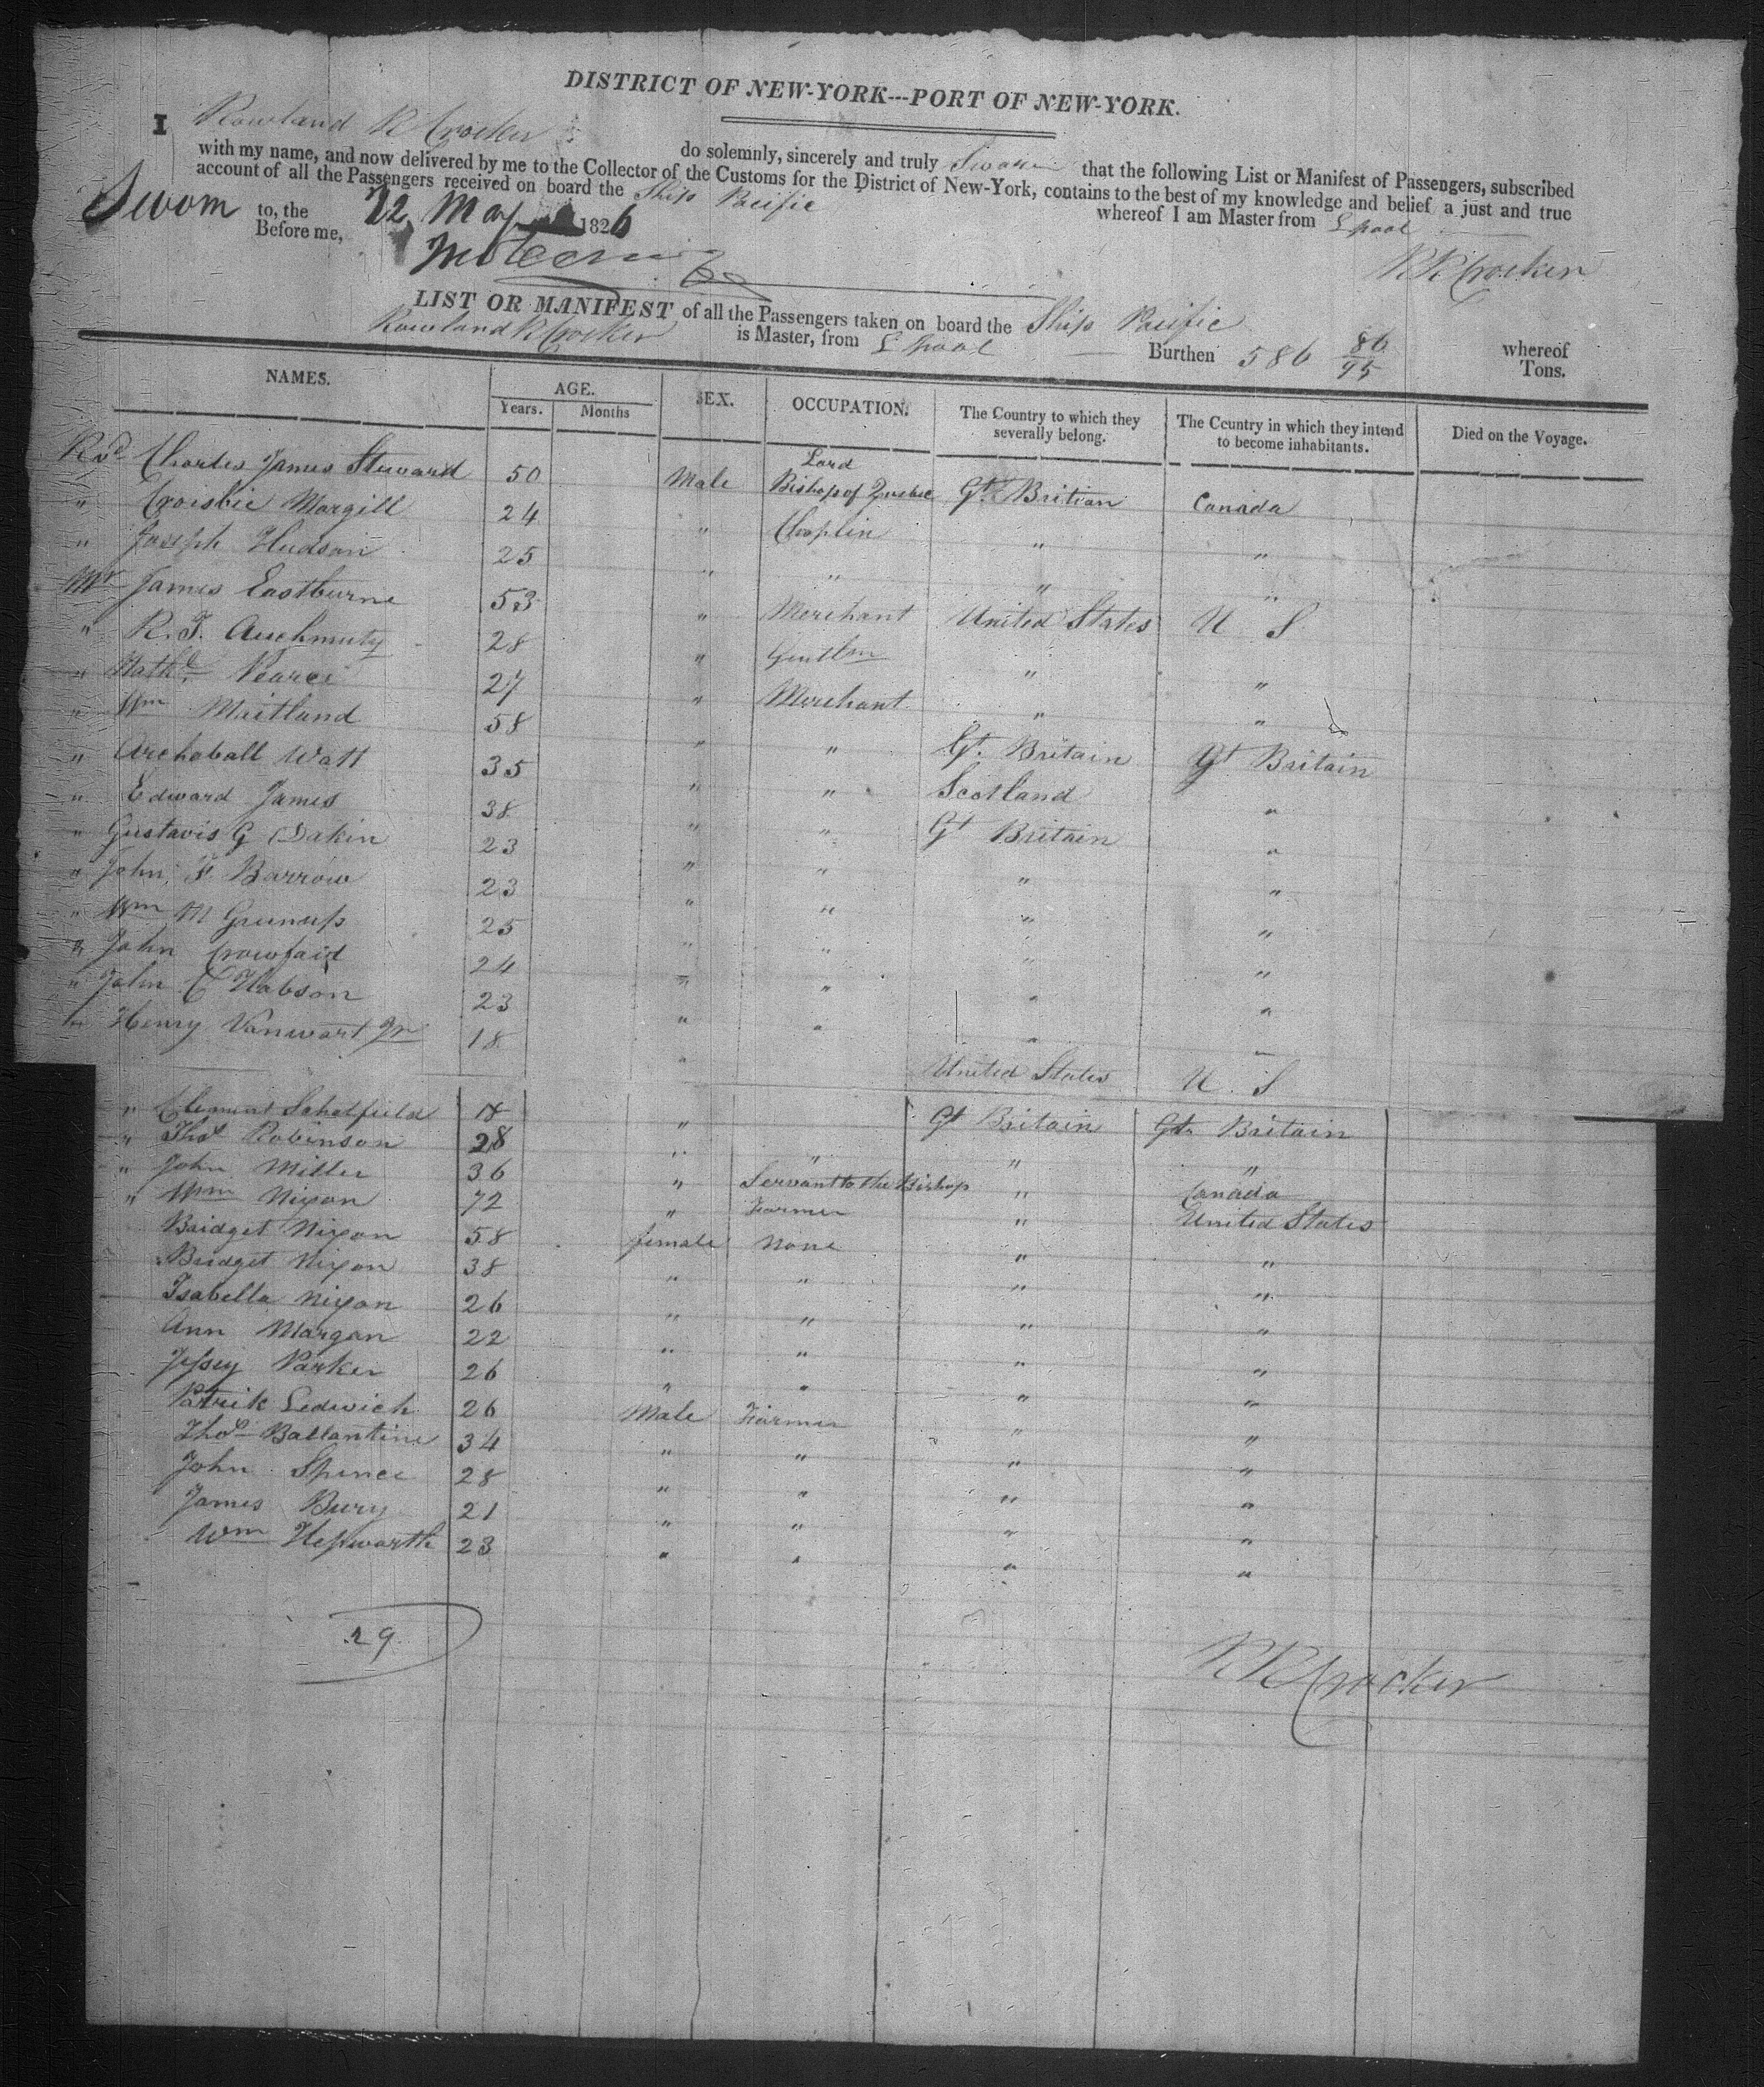 DISTRICT OF NEW-YORK---PORT OF NEW-YORK.
I Rowland R Crocker do solemnly, sincerely and truly Swear that the following List or Manifest of Passengers, subscribed
with my name, and now delivered by me to the Collector of the Customs for the District of New-York, contains to the best of my knowledge and belief a just and true
account of all the Passengers received on board the Ship Pacific whereof I am Master from L pool
Sworn to, the 22 May 1826
Before me,
R R Crocker
LIST OR MANIFEST of all the Passengers taken on board the Ship Pacific whereof
Rowland R Crocker is Master, from L Pool Burthen 586 86/95 Tons.
NAMES. AGE. SEX. OCCUPATION. The Country to which they severally belong. The Country in which they intend to become inhabitants. Died on the Voyage.
Years. Months
Rvd Charles James Steward 50 Male Lord Bishop of Quebec Gt. Britian Canada
" Croisbie Morgill 24 " Choplin " "
" Joseph Hudson 25 " " " "
Mr James Eastburne 53 " Merchant United States U S
" R. T. Auchmuty 28 " Gentlm " "
" Nathl. Pearce 27 " Merchant " "
" Wm Maitland 58 " " Gt. Britain Gt Britain
" Archaball Watt 35 " " Scotland "
" Edward James 38 " " Gt Britain "
" Gustavis G Dakin 23 " " " "
" John F. Barrow 23 " " " "
" Wm M Greenup 25 " " " "
" John Crowfaid 24 " " " "
" John C Hobson 23 " " " "
" Henry Vanwart Jr 18 " United States U. S
" Clement Scholfield 18 " Gt Britain Gt. Britain
" Thos Robinson 28 " " " "
" John Miller 36 " Servant to the Bishop " Canada
" Wm Nixon 72 " Farmer " United States
Bridget Nixon 58 female None " "
Bridget Nixon 38 " " " "
Isabella Nixon 26 " " " "
Ann Morgan 22 " " " "
Jessey Parker 26 " " " "
Patrik Ledwich 26 Male Farmer " "
Thos Ballantine 34 " " " "
John Spence 28 " " " "
James Bury 21 " " " "
Wm Hepworth 23 " " " "
29
R R Crocker